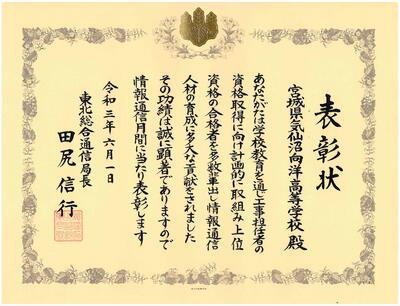 表彰状
宮城県気仙沼向洋高等学校 殿
あなたがたは学校教育を通じ工事担任者の
資格取得に向け計画的に取組み上位
資格の合格者を多数輩出し情報通信
人材の育成に多大な貢献をされました
その功績は誠に顕著でありますので
情報通信月間に当たり表彰します
令和三年六月一日
東北総合通信局長
田尻信行